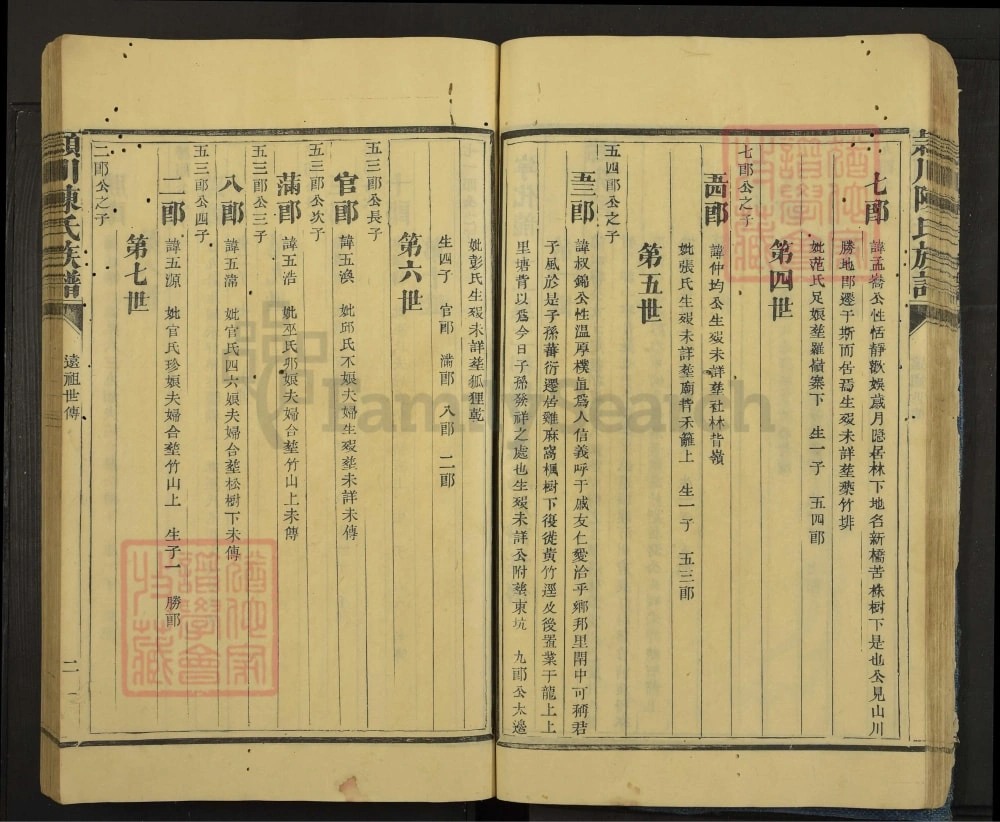 七郎
諱孟嵛公性恬靜歡娛歲月隱居林下地名新橋苦株樹下是也公見山川
勝地郎遷于斯而居焉生殁未詳塟藥竹排
妣范氏足娘塟羅嶺寨下 生一子 五四郎
第四世
七郎公之子
五四郎
諱仲均公生殁未詳塟社林背嶺
妣張氏生殁未詳塟廟背禾籬上 生一子 五三郎
第五世
五四郎公之子
五三郎
諱叔錦公性溫厚樸直爲人信義呼于戚友仁愛洽乎鄉邦里閈中可稱君
子風於是子孫蕃衍遷居雞麻窩楓樹下復徙黃竹逕及後置業于龍上上
里塘背以爲今日子孫發祥之處也生殁未詳公附塟東坑 九郎公太邊
妣彭氏生殁未詳塟狐狸乾
生四子 官郎 滿郎 八郎 二郎
第六世
五三郎公長子
官郎
諱五渙 妣邱氏不娘夫婦生殁塟未詳未傳
五三郎公次子
滿郎
諱五浩 妣巫氏邪娘夫婦合塟竹山上未傳
五三郎公三子
八郎
諱五 妣官氏四六娘夫婦合塟松樹下未傳
五三郎公四子
二郎
諱五源 妣官氏珍娘夫婦合塟竹山上 生子一 勝郎
第七世
二郎公之子
潁川陳氏族譜
遠祖世傳
二